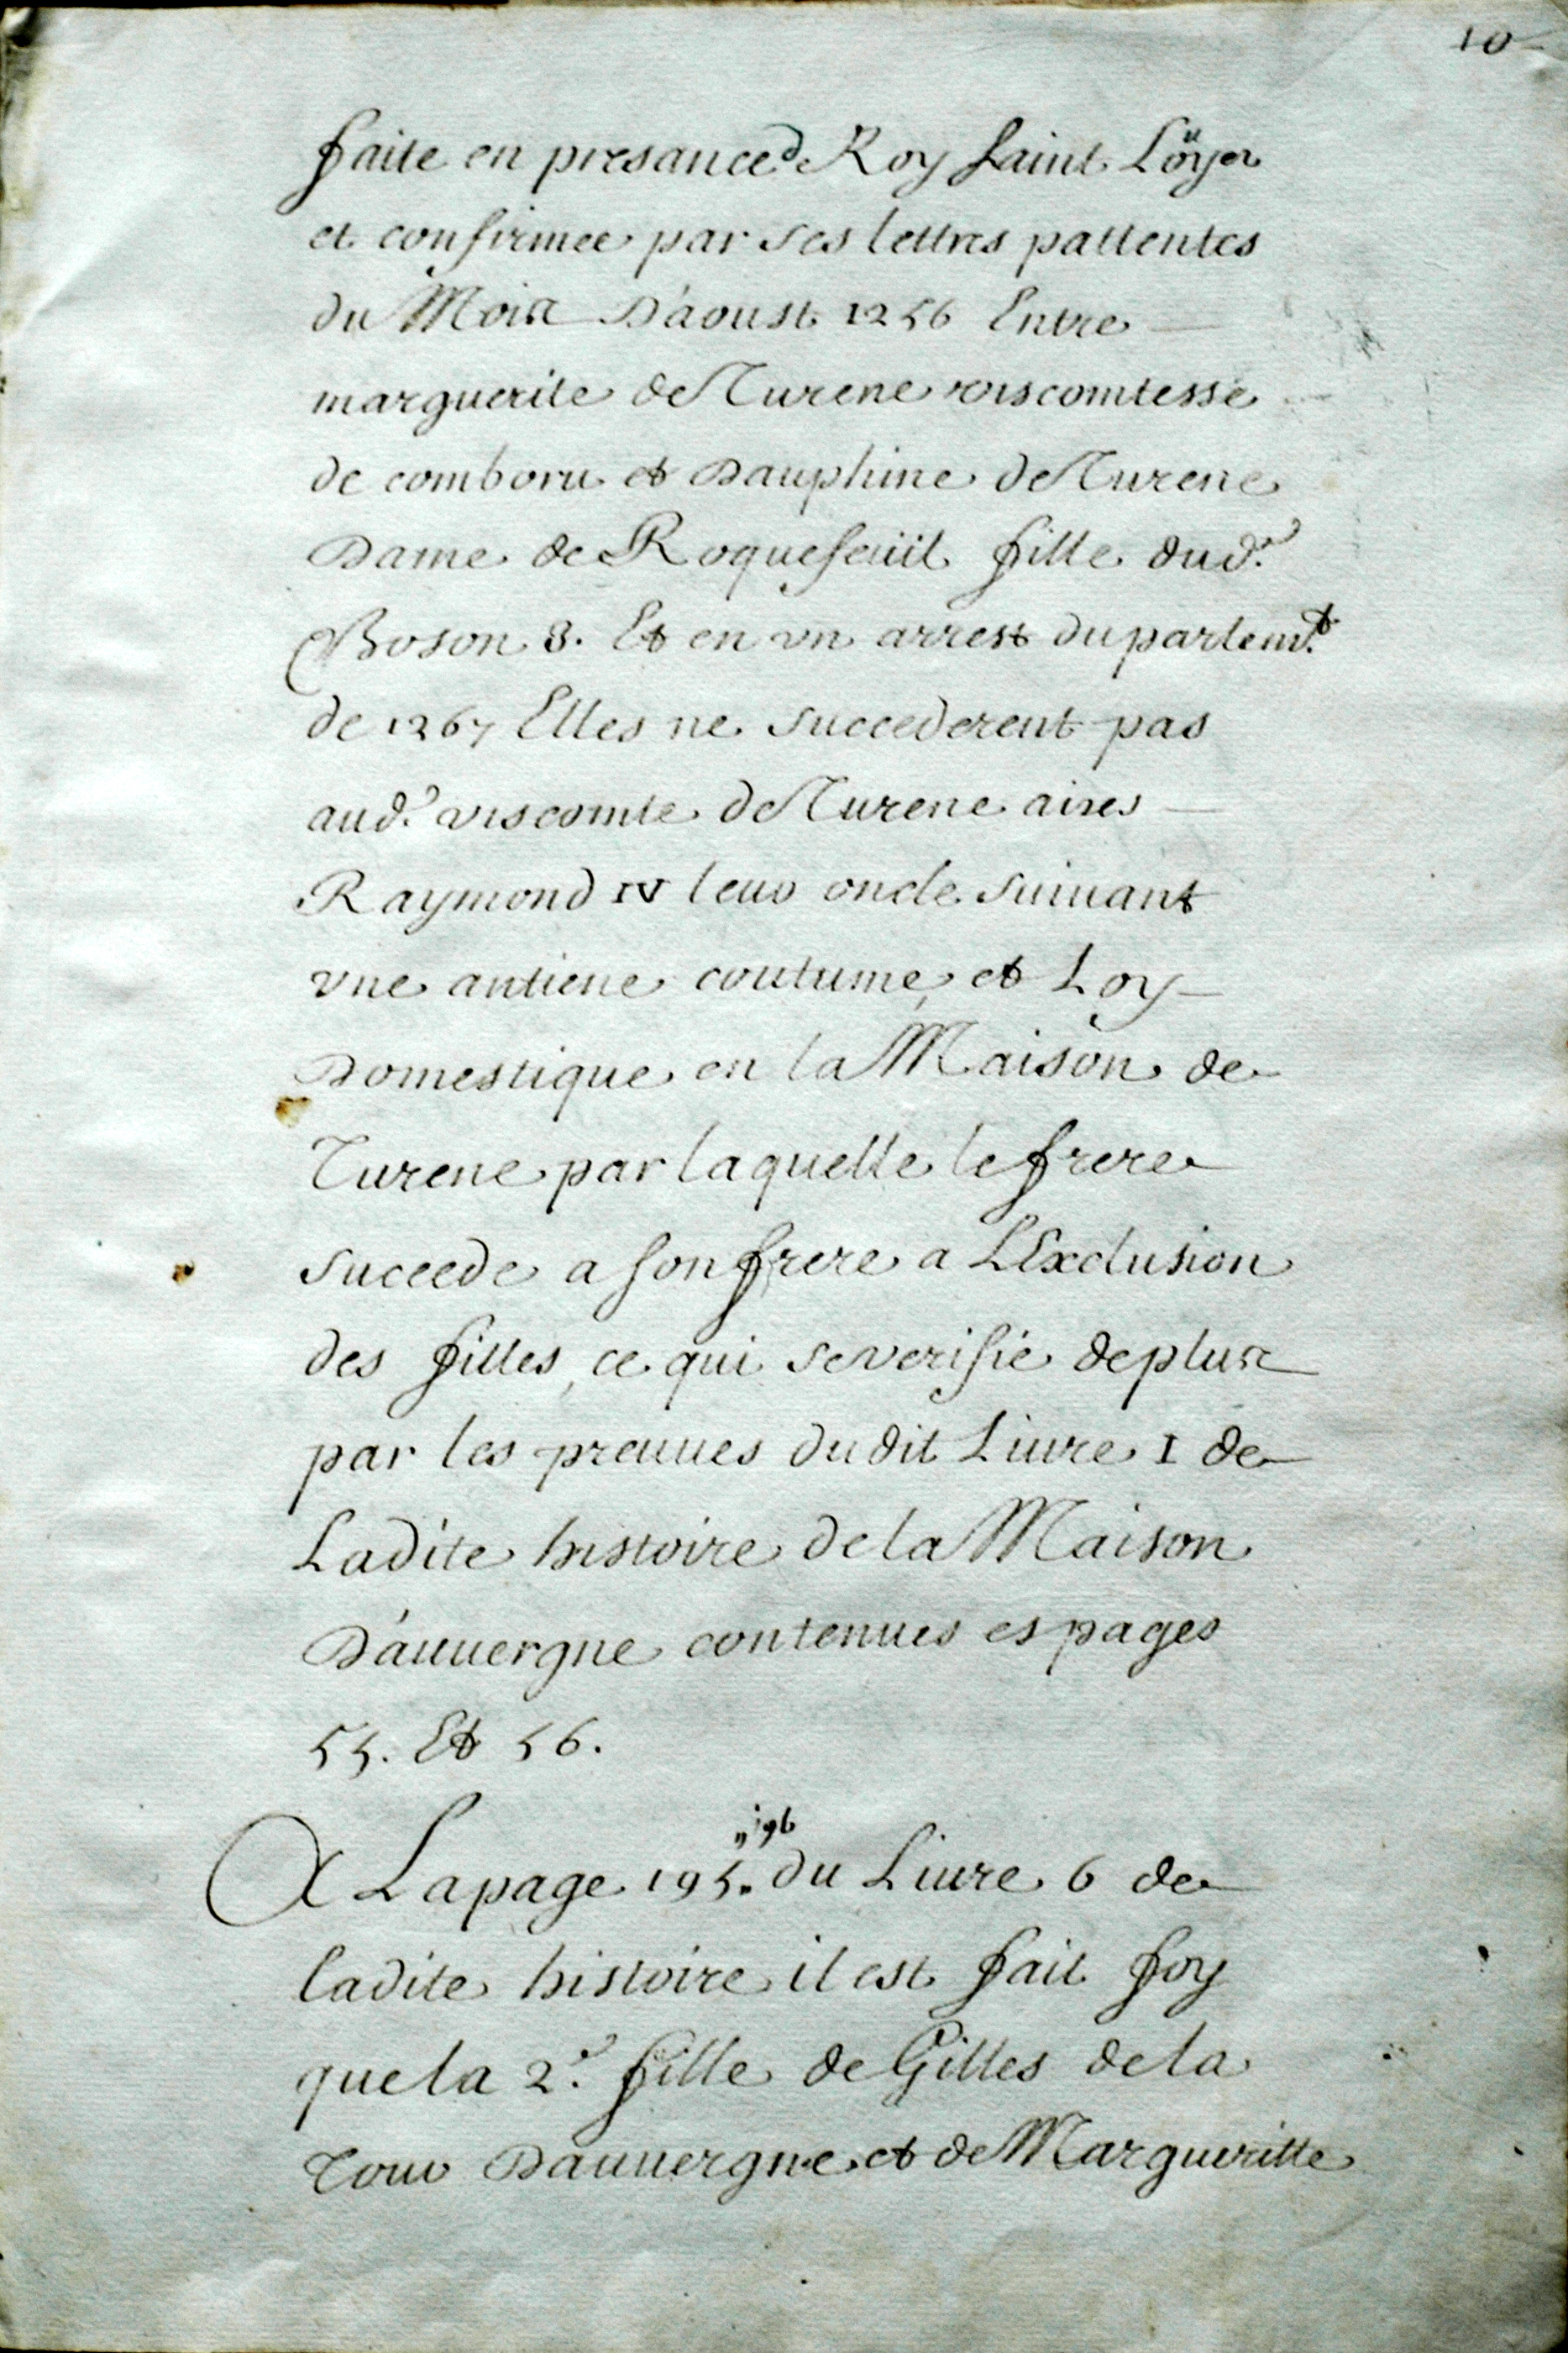 10
faite en presance de Roy saint Loÿs
et confirmee par ses lettres pattentes
du Mois D'aoust 1256 Entre
marguerite de Turene viscomtesse
de comborn et Dauphine de Turene
Dame de Roquefeuil fille dud.
Boson 3. Et en vn arrest du parlemt.
de 1267 Elles ne succederent pas
aud. viscomte de Turene ains
Raymond IV leur oncle suiuant
vne antiene coutume, et Loy
Domestique en la Maison de
Turene par laquelle le frere
succede a son frere a L'Exclusion
des filles, ce qui se verifie de plus
par les preuues du dit Liure I de
Ladite histoire de la Maison
D'auuergne contenues es pages
55. Et 56.
196
A La page 195. du Liure 6 de
ladite histoire il est fait foy
que la 2.e fille de Gilles de la
Tour Dauuergne et de Margueritte